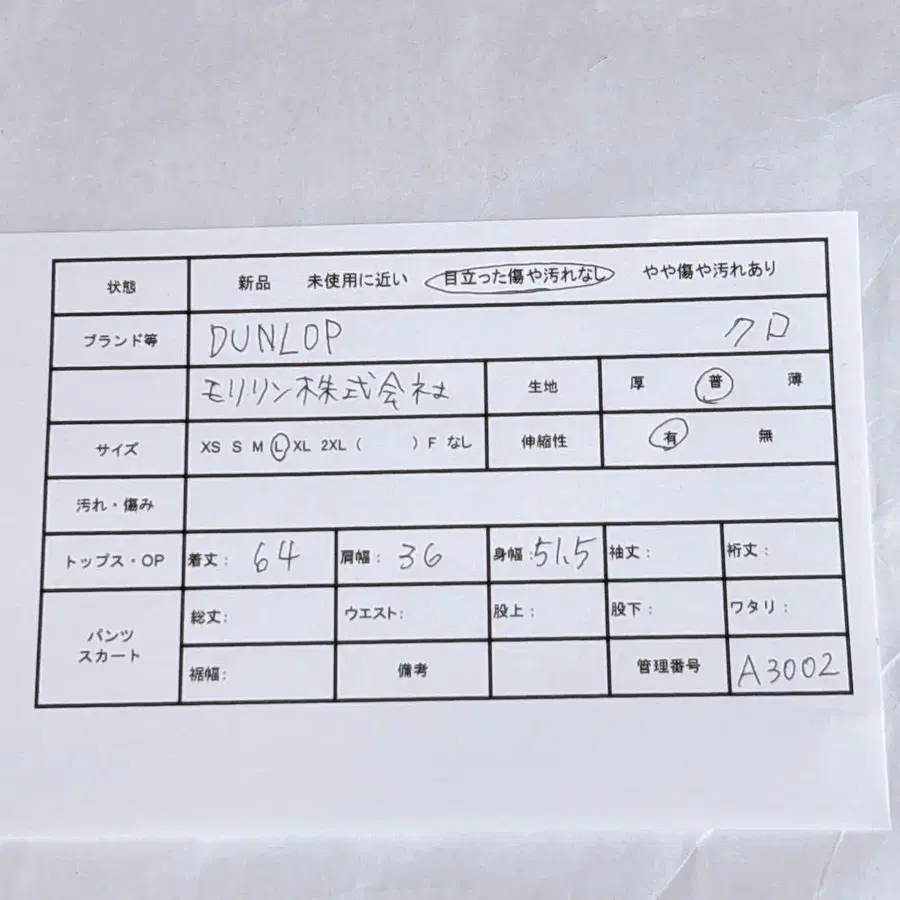 状態 新品 未使用に近い 目立った傷や汚れなし やや傷や汚れあり
ブランド等 DUNLOP クロ
モリリン株式会社 生地 厚 普 薄
サイズ XS S M L XL 2XL ( ) F なし 伸縮性 有 無
汚れ・傷み
トップス・OP 着丈: 64 肩幅: 36 身幅: 51.5 袖丈: 裄丈:
パンツ スカート 総丈: ウエスト: 股上: 股下: ワタリ:
裾幅: 備考 管理番号 A3002